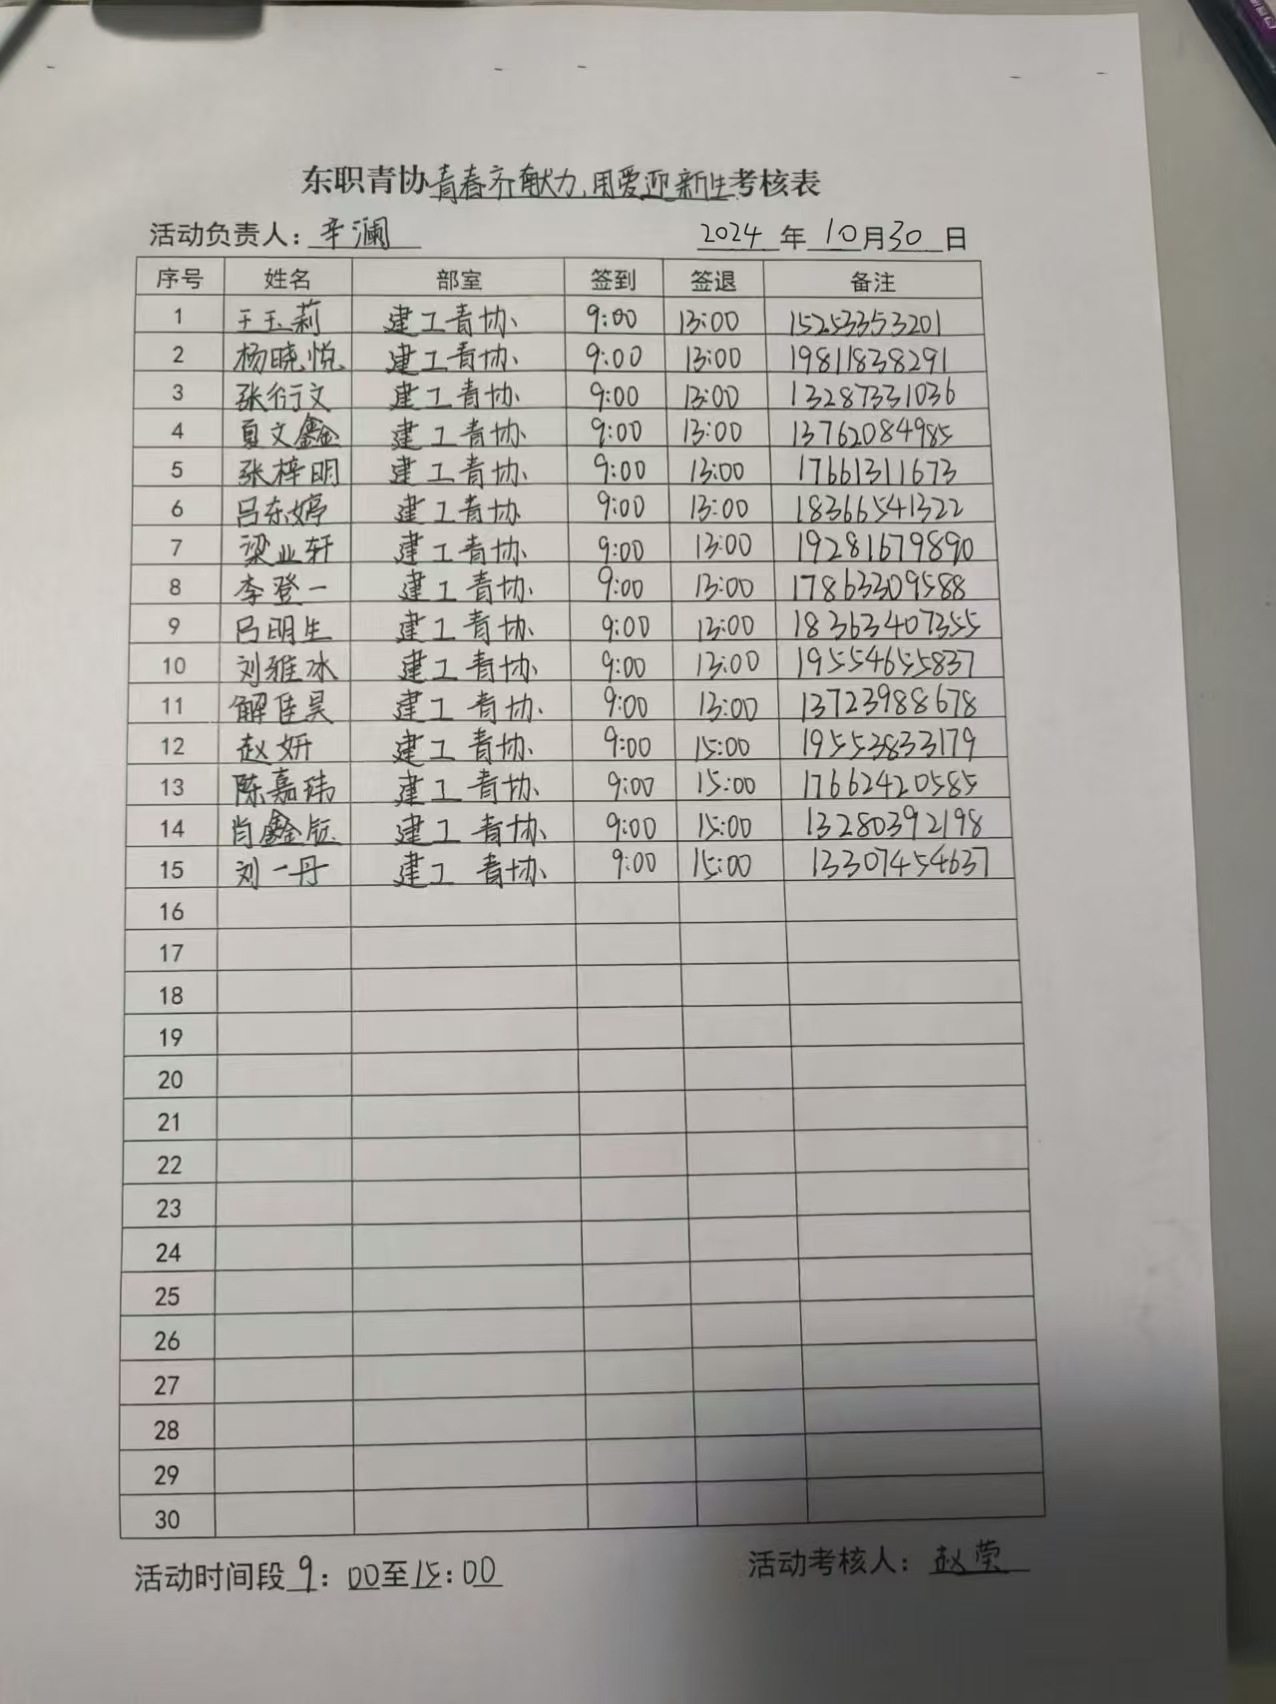 东职青协青春齐献力,用爱迎新生考核表
活动负责人：辛澜 2024 年 10月30 日
序号 姓名 部室 签到 签退 备注
1 王玉莉 建工青协 9:00 13:00 15253353201
2 杨晓悦 建工青协 9:00 13:00 19811838291
3 张衍文 建工青协 9:00 13:00 13287331036
4 夏文鑫 建工青协 9:00 13:00 13762084985
5 张梓明 建工青协 9:00 13:00 17661311673
6 吕东婷 建工青协 9:00 13:00 18366541322
7 梁业轩 建工青协 9:00 13:00 19281679890
8 李登一 建工青协 9:00 13:00 17863309588
9 吕明生 建工青协 9:00 13:00 18363407355
10 刘雅冰 建工青协 9:00 13:00 19554655837
11 解佳昊 建工青协 9:00 13:00 13723988678
12 赵妍 建工青协 9:00 15:00 19553833179
13 陈嘉玮 建工青协 9:00 15:00 17662420585
14 肖鑫 建工青协 9:00 15:00 13280392198
15 刘一丹 建工青协 9:00 15:00 13307454637
16
17
18
19
20
21
22
23
24
25
26
27
28
29
30
活动时间段9：00至15：00 活动考核人：赵莹